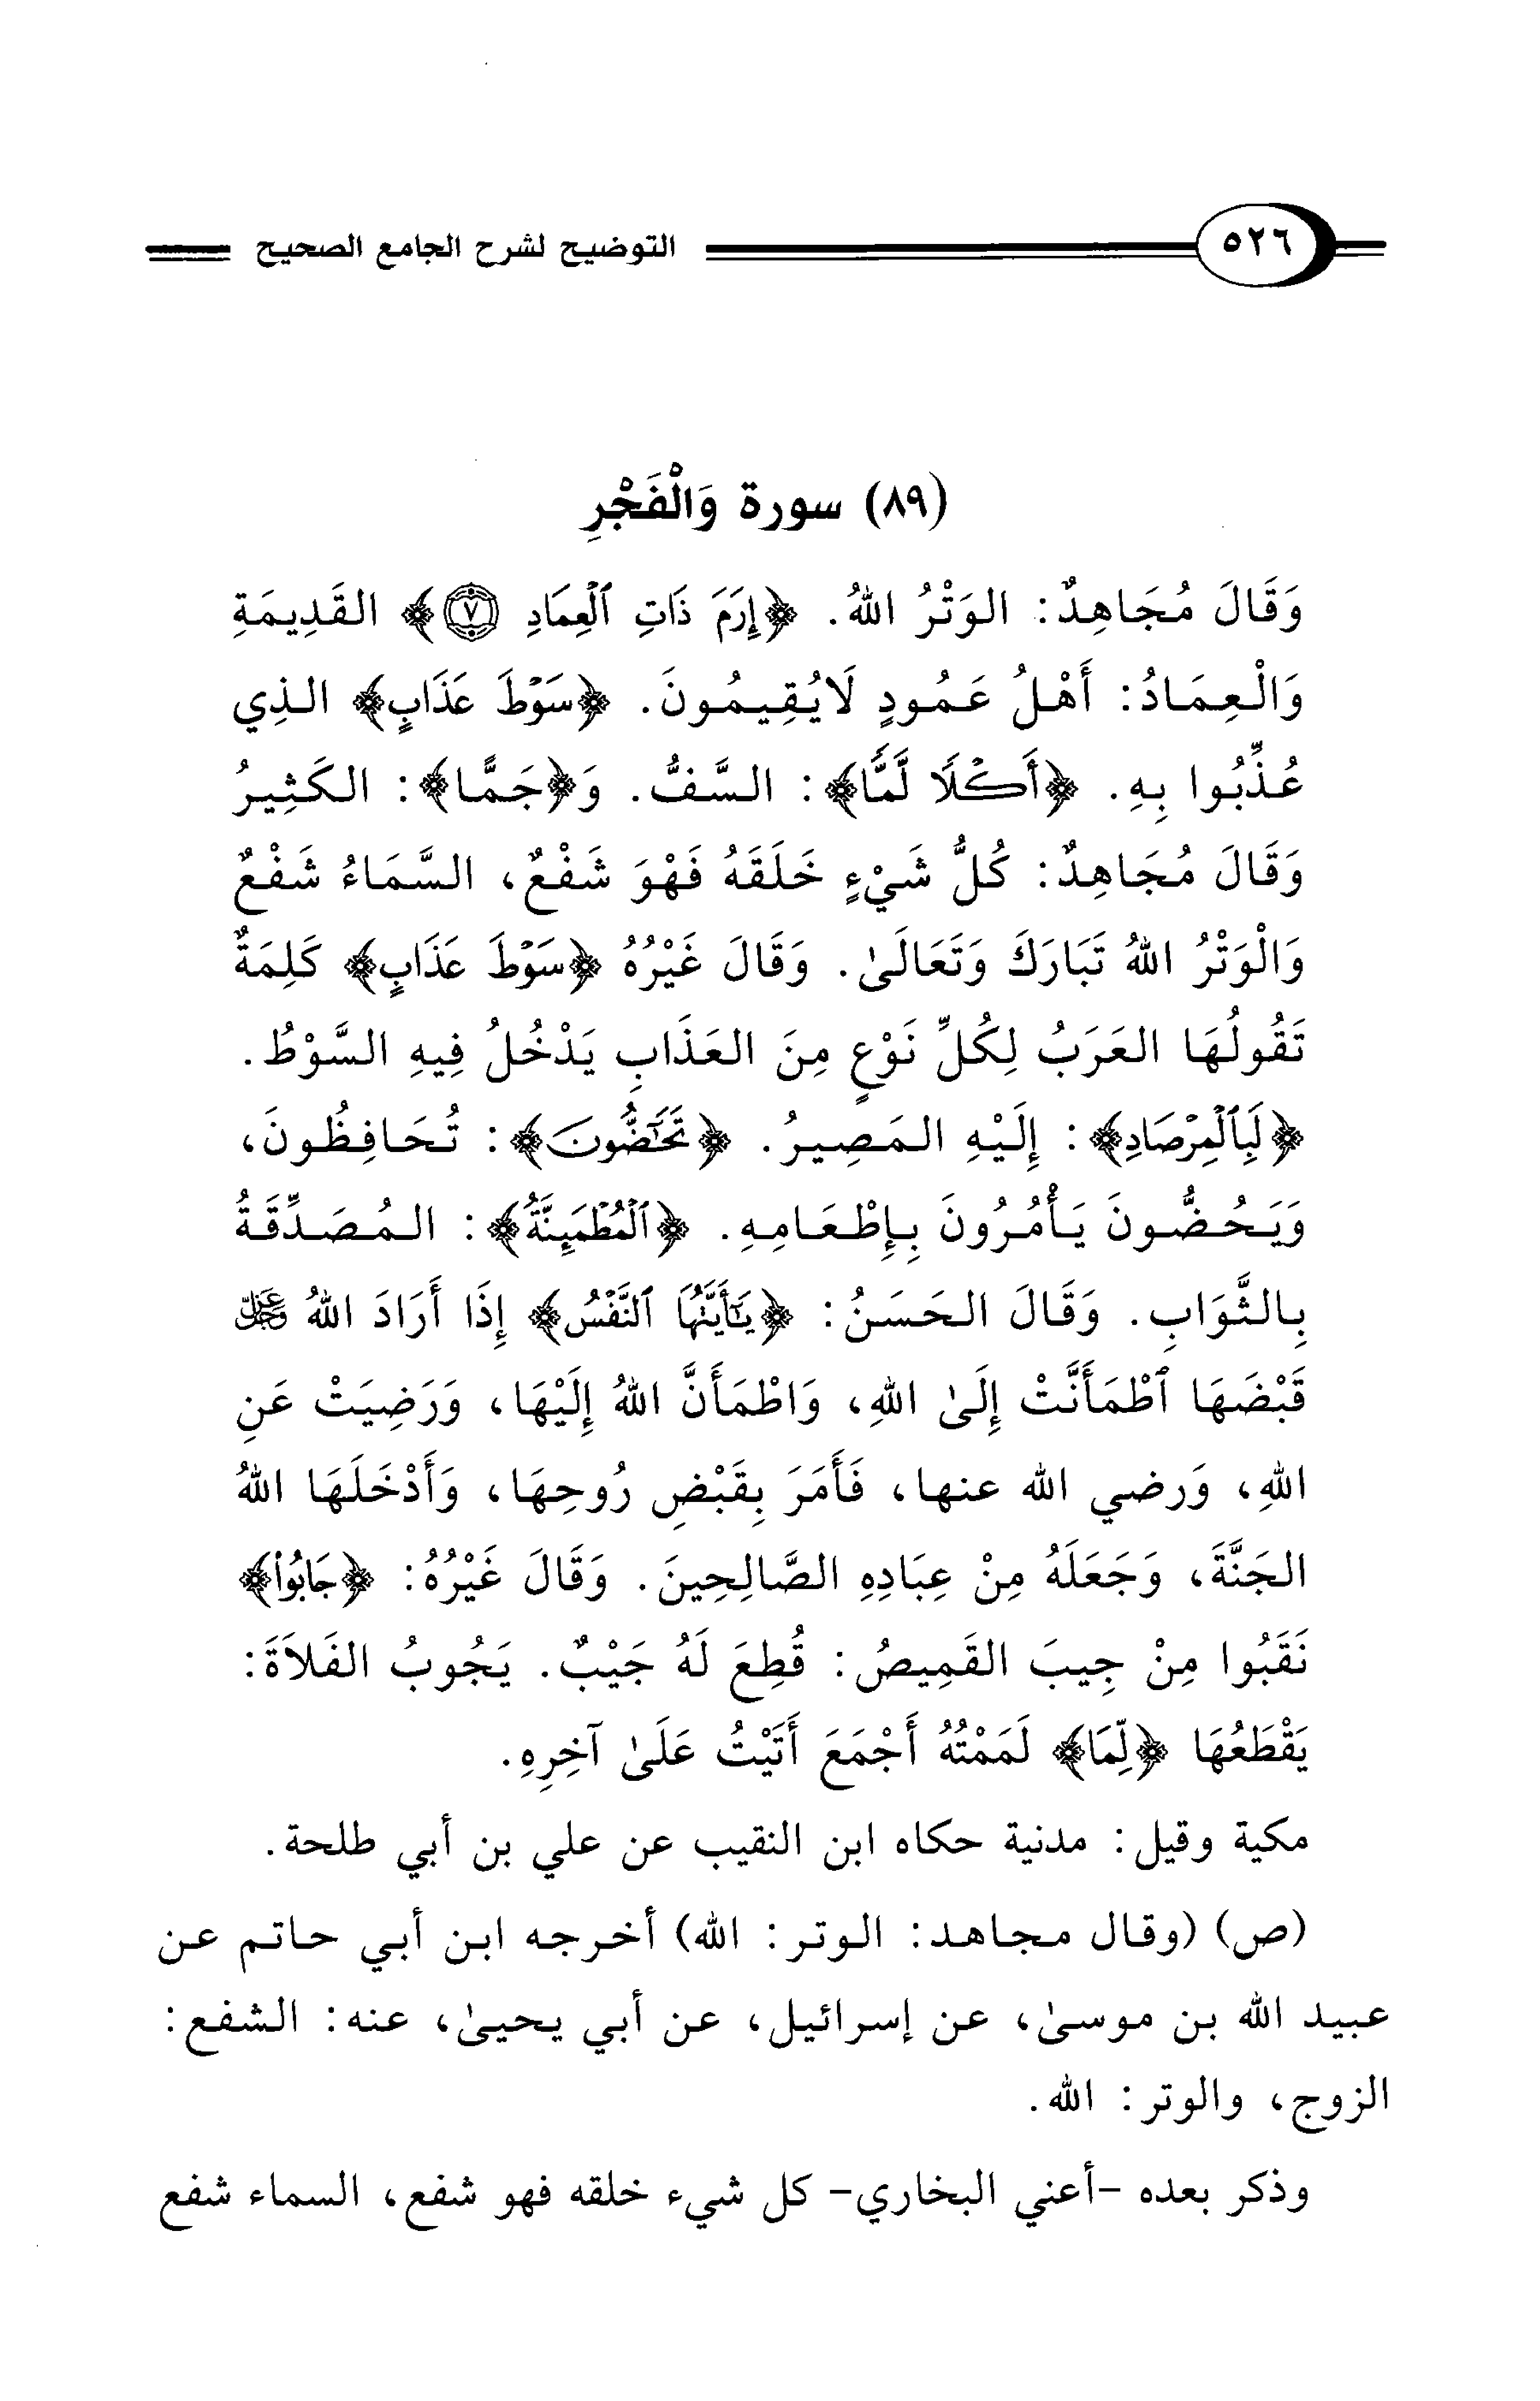 ٥٢٦ التوضيح لشرح الجامع الصحيح
(٨٩) سورة وَالْفَجْرِ
وَقَالَ مُجَاهِدٌ: الوَتْرُ اللهُ. ﴿إِرَمَ ذَاتِ ٱلْعِمَادِ ٧﴾ القَدِيمَةِ
وَالْعِمَادُ: أَهْلُ عَمُودٍ لَايُقِيمُونَ. ﴿سَوْطَ عَذَابٍ﴾ الذِي
عُذِّبُوا بِهِ. ﴿أَكْلًا لَّمًّا﴾: السَّفُّ. وَ﴿جَمًّا﴾: الكَثِيرُ
وَقَالَ مُجَاهِدٌ: كُلُّ شَيْءٍ خَلَقَهُ فَهْوَ شَفْعٌ، السَّمَاءُ شَفْعٌ
وَالْوَتْرُ اللهُ تَبَارَكَ وَتَعَالَىٰ. وَقَالَ غَيْرُهُ ﴿سَوْطَ عَذَابٍ﴾ كَلِمَةٌ
تَقُولُهَا العَرَبُ لِكُلِّ نَوْعٍ مِنَ العَذَابِ يَدْخُلُ فِيهِ السَّوْطُ.
﴿لَبِٱلْمِرْصَادِ﴾: إِلَيْهِ المَصِيرُ. ﴿تَحَٰٓضُّونَ﴾: تُحَافِظُونَ،
وَيَحُضُّونَ يَأْمُرُونَ بِإِطْعَامِهِ. ﴿ٱلْمُطْمَئِنَّةُ﴾: المُصَدِّقَةُ
بِالثَّوَابِ. وَقَالَ الحَسَنُ: ﴿يَٰٓأَيَّتُهَا ٱلنَّفْسُ﴾ إِذَا أَرَادَ اللهُ عَزَّ وَجَلَّ
قَبْضَهَا ٱطْمَأَنَّتْ إِلَىٰ اللهِ، وَاطْمَأَنَّ اللهُ إِلَيْهَا، وَرَضِيَتْ عَنِ
اللهِ، وَرضي الله عنها، فَأَمَرَ بِقَبْضِ رُوحِهَا، وَأَدْخَلَهَا اللهُ
الجَنَّةَ، وَجَعَلَهُ مِنْ عِبَادِهِ الصَّالِحِينَ. وَقَالَ غَيْرُهُ: ﴿جَابُوا۟﴾
نَقَبُوا مِنْ جِيبَ القَمِيصُ: قُطِعَ لَهُ جَيْبٌ. يَجُوبُ الفَلاَةَ:
يَقْطَعُهَا ﴿لِّمَا﴾ لَمَمْتُهُ أَجْمَعَ أَتَيْتُ عَلَىٰ آخِرِهِ.
مكية وقيل: مدنية حكاه ابن النقيب عن علي بن أبي طلحة.
(ص) (وقال مجاهد: الوتر: الله) أخرجه ابن أبي حاتم عن
عبيد الله بن موسىٰ، عن إسرائيل، عن أبي يحيىٰ، عنه: الشفع:
الزوج، والوتر: الله.
وذكر بعده -أعني البخاري- كل شيء خلقه فهو شفع، السماء شفع